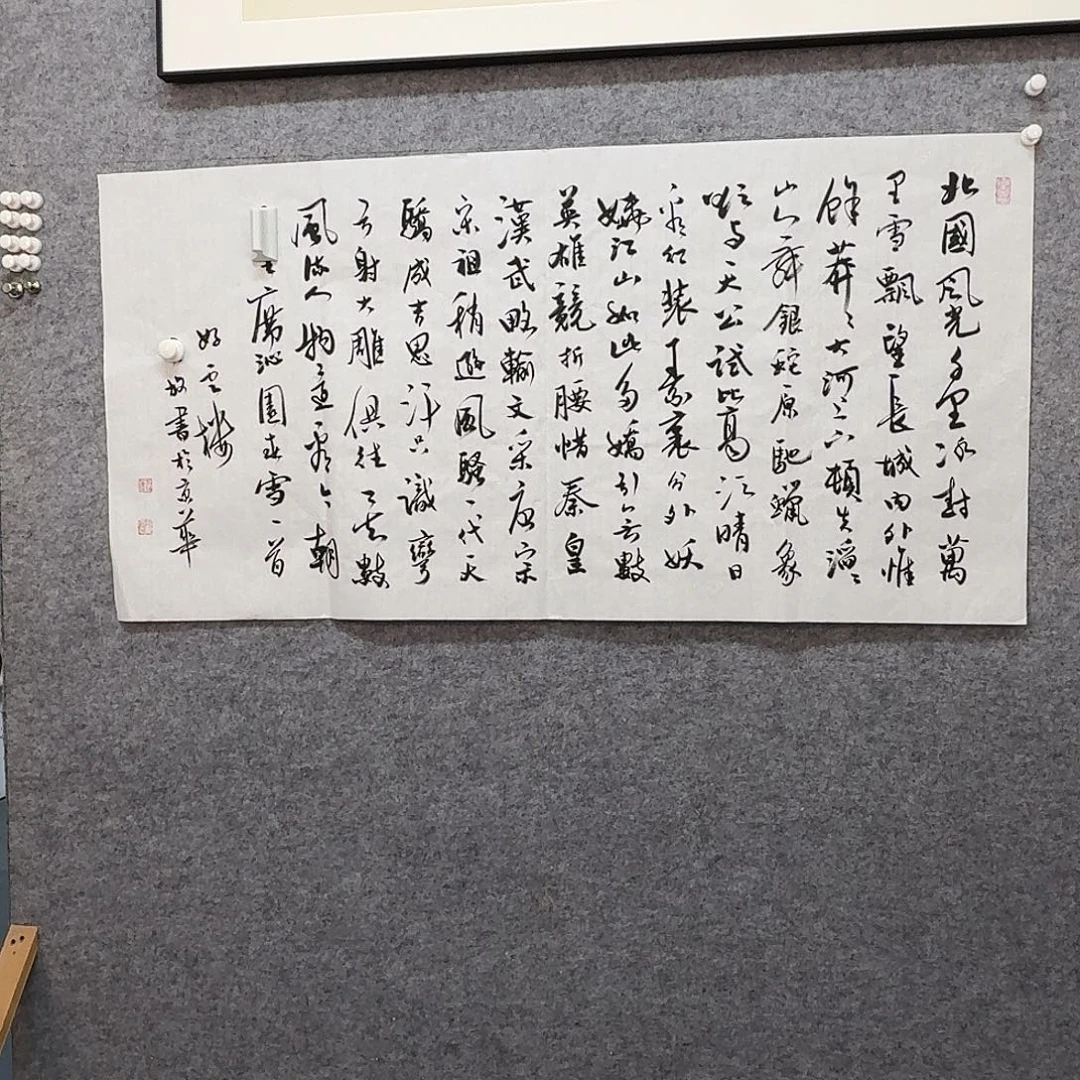 北國風光千里冰封萬
里雪飄望長城内外惟
餘莽〻大河上下頓失滔〻
山舞銀蛇原馳蠟象
欲与天公試比高須晴日
看紅裝素裹分外妖
嬈江山如此多嬌引無數
英雄競折腰惜秦皇
漢武略輸文采唐宗
宋祖稍遜風騷一代天
驕成吉思汗只識彎
弓射大雕俱往矣數
風流人物還看今朝
沁園春雪一首
好雲樓
書於京華